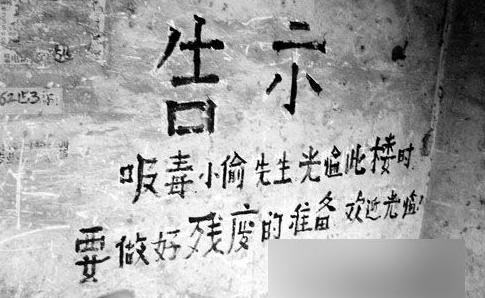 告示
吸毒小偷先生光临此楼时
要做好残废的准备 欢迎光临!